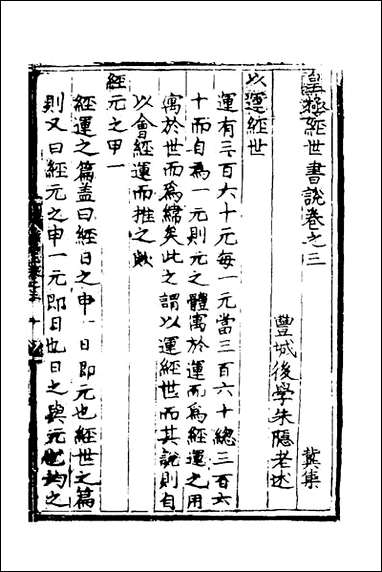 皇極經世書說卷之三
豐城後學朱隱老述 冀集
以運經世
運有三百六十元每一元當三百六十總三百六
十而自為一元則元之體寓於運而為經運之用
寓於世而為緯矣此之謂以運經世而其說則自
以會經運而推之歟
經元之甲一
經運之篇蓋曰經日之申一日即元也經世之篇
則又曰經元之申一元即日也日之與元也均之